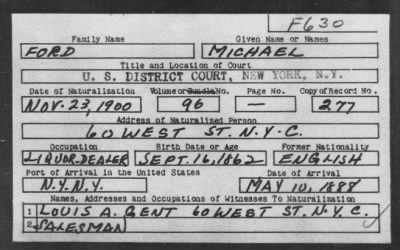 F630
Family Name Given Name or Names
FORD MICHAEL
Title and Location of Court
U. S. DISTRICT COURT, NEW YORK, N.Y.
Date of Naturalization Volume or Bundle No. Page No. Copy of Record No.
NOV. 23, 1900 96 — 277
Address of Naturalized Person
60 WEST ST. N.Y.C.
Occupation Birth Date or Age Former Nationality
LIQUOR. DEALER SEPT. 16, 1862 ENGLISH
Port of Arrival in the United States Date of Arrival
N.Y. N.Y. MAY 10, 1888
Names, Addresses and Occupations of Witnesses To Naturalization
1 LOUIS A. GENT 60 WEST ST. N.Y.C.
2 SALESMAN